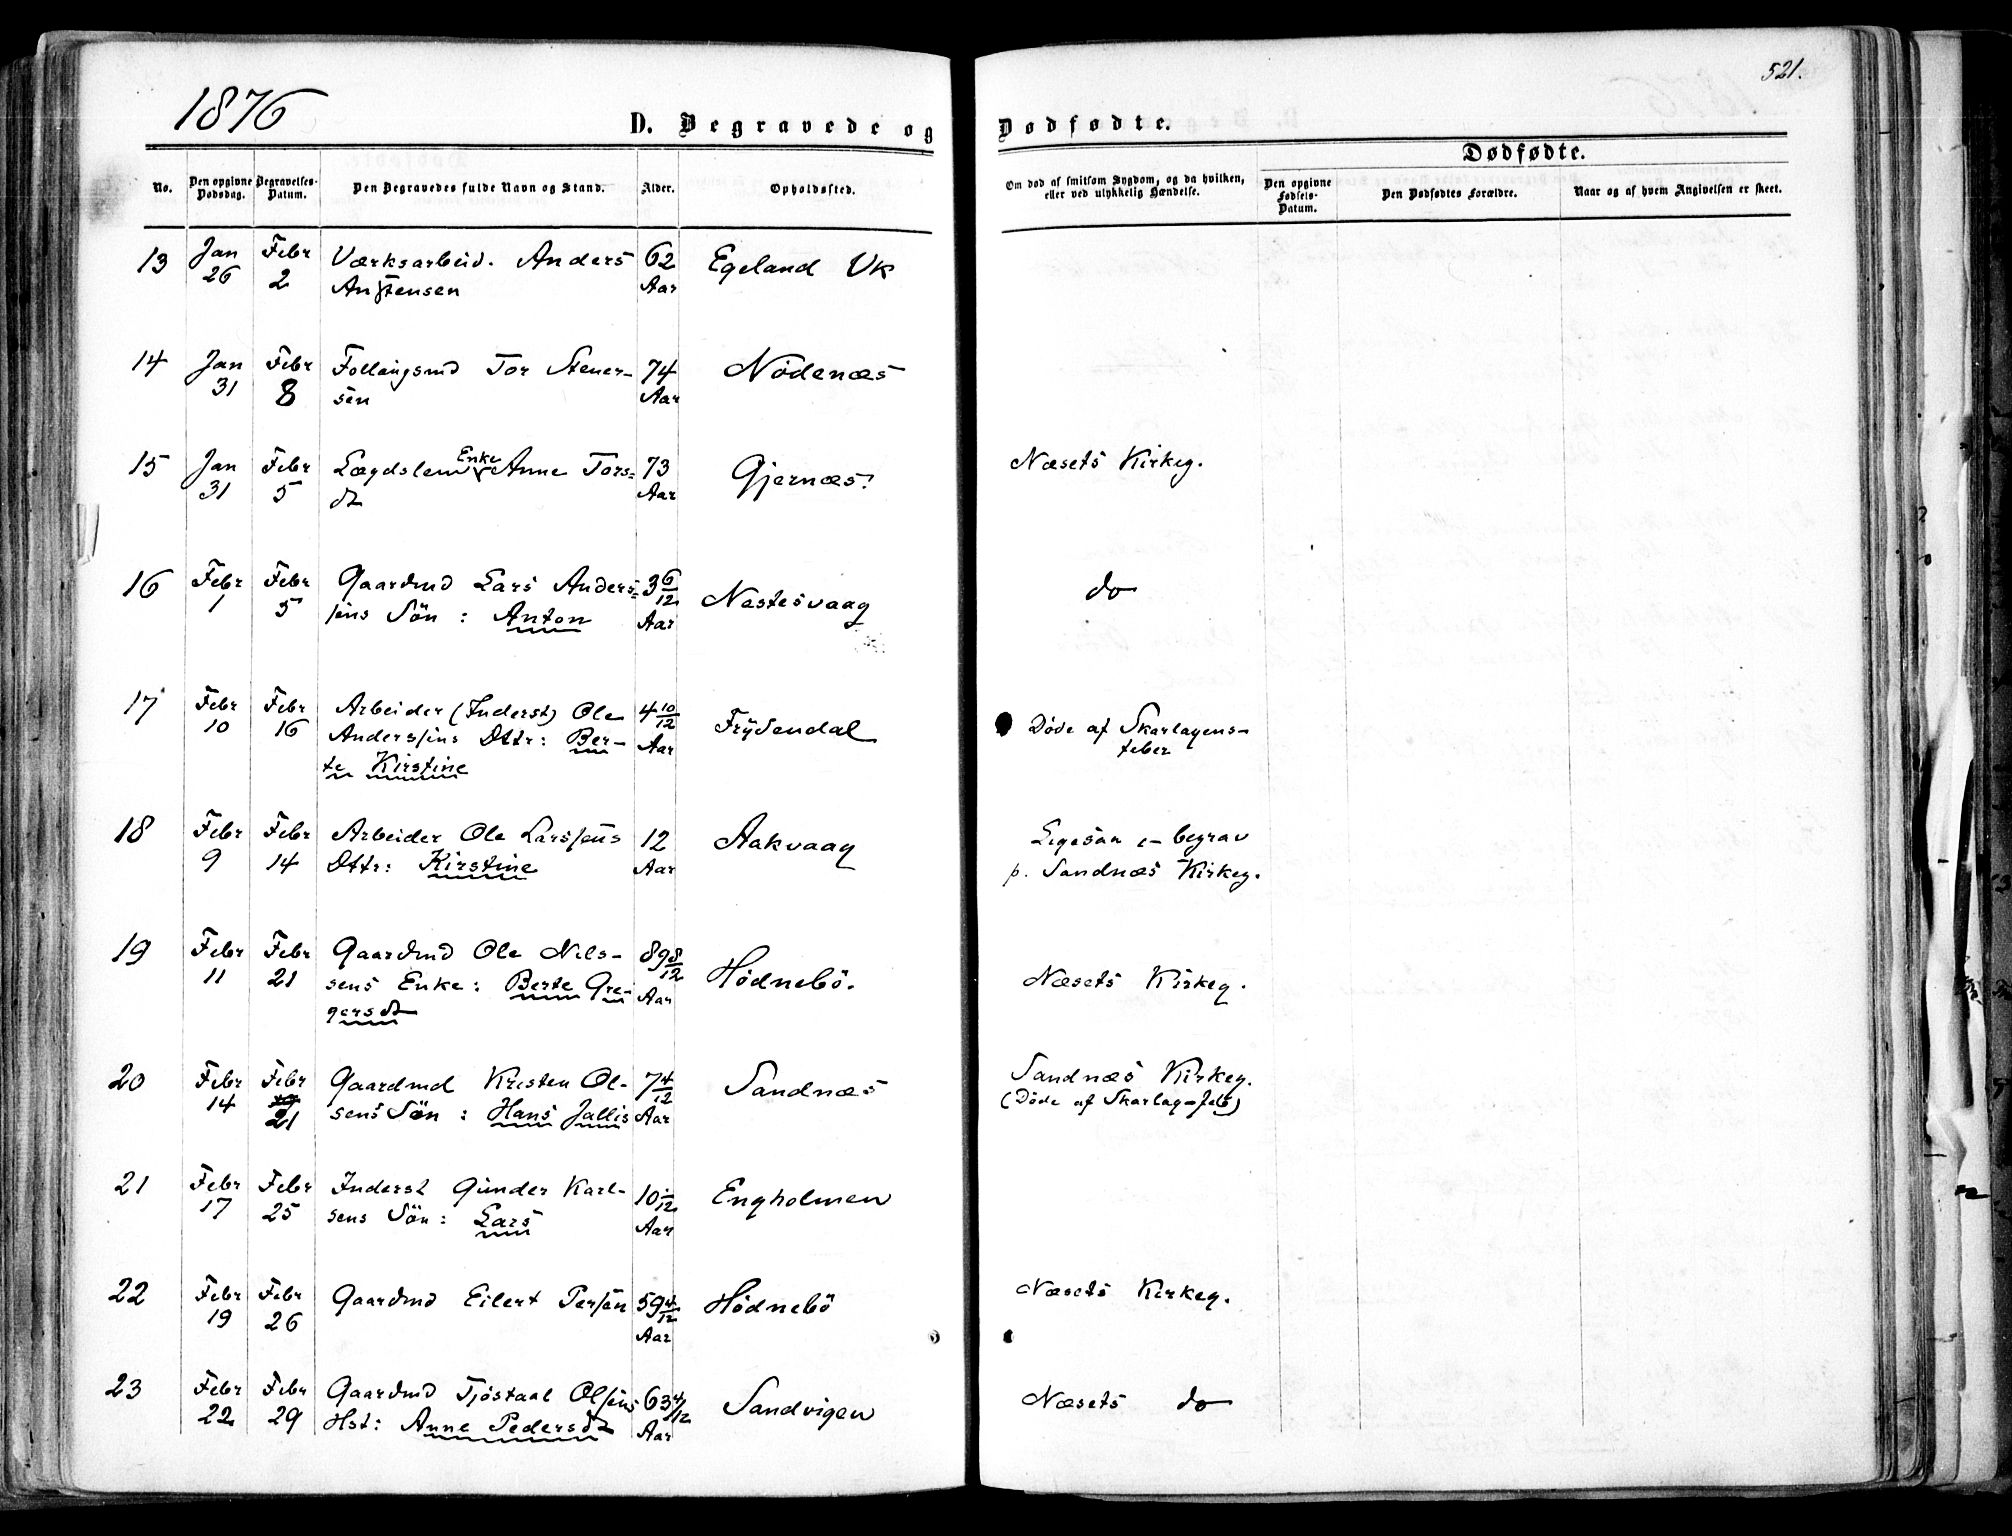 1876
521.
D. Begravede og Dødfødte.
Dødfødte.
No.
Den opgivne Dødsdag.
Begravelses-Datum.
Den Begravedes fulde Navn og Stand.
Alder.
Opholdssted.
Om død af smitsom Sygdom, og da hvilken, eller ved ulykkelig Hændelse.
Den opgivne Fødsels-Datum.
Den Dødfødtes Forældre.
Naar og af hvem Angivelsen er skeet.
13 Jan Febr Værksarbeid. Anders 62 Egeland Vk
26 2 Anstensen Aar
14 Jan Febr Follaugsmd Tor Stener- 74 Nödenæs
31 8 sen Aar
15 Jan Febr Lægdslem Enke Anne Tors- 73 Gjernæs. Næsets Kirkeg.
31 5 dt Aar
16 Febr Febr Gaardmd Lars Anders- 3 6/12 Næstesvaag do
1 5 sens Sön : Anton Aar
17 Febr Febr Arbeider (Inderst) Ole 4 10/12 Frydendal Döde af Skarlagens-
10 16 Anderssens Dttr: Ber- Aar feber
te Kirstine
18 Febr Febr Arbeider Ole Larssens 12 Aakvaag Ligesaa begrav
9 14 Dttr: Kirstine Aar p. Sandnæs Kirkeg.
19 Febr Febr Gaardmd Ole Nils- 89 8/12 Hödnebö. Næsets Kirkeg.
11 21 sens Enke : Berte Gre- Aar
gersdt
20 Febr Febr Gaardmd Kristen Ol- 7 4/12 Sandnæs Sandnæs Kirkeg.
14 21 sens Sön : Hans Jallis Aar (Döde af Skarlag-feb)
21 Febr Febr Inderst Gunder Karl- 10 /12 Engholmen
17 25 sens Sön : Lars Aar
22 Febr Febr Gaardmd Eilert Perssen 59 4/12 Hödnebö Næsets Kirkeg.
19 26 Aar
23 Febr Febr Gaardmd Tjöstaal Olsens 63 4/12 Sandvigen Næsets do
22 29 Hst: Anne Pedersdt Aar